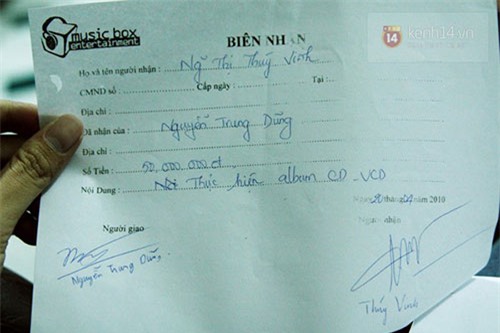 music box
entertainment
kenh14.vn
BIÊN NHẬN
Họ và tên người nhận : Ng̃ Thị Thúy Vinh
CMND số : Cấp ngày : Tại :
Địa chỉ :
Đã nhận của : Nguyễn Trung Dũng
Địa chỉ :
Số Tiền : 50.000.000đ
Nội Dung : Thực hiện album CD-VCD
Ngày 20 tháng 04 năm 2010
Người giao Người nhận
Nguyễn Trung Dũng Thúy Vinh